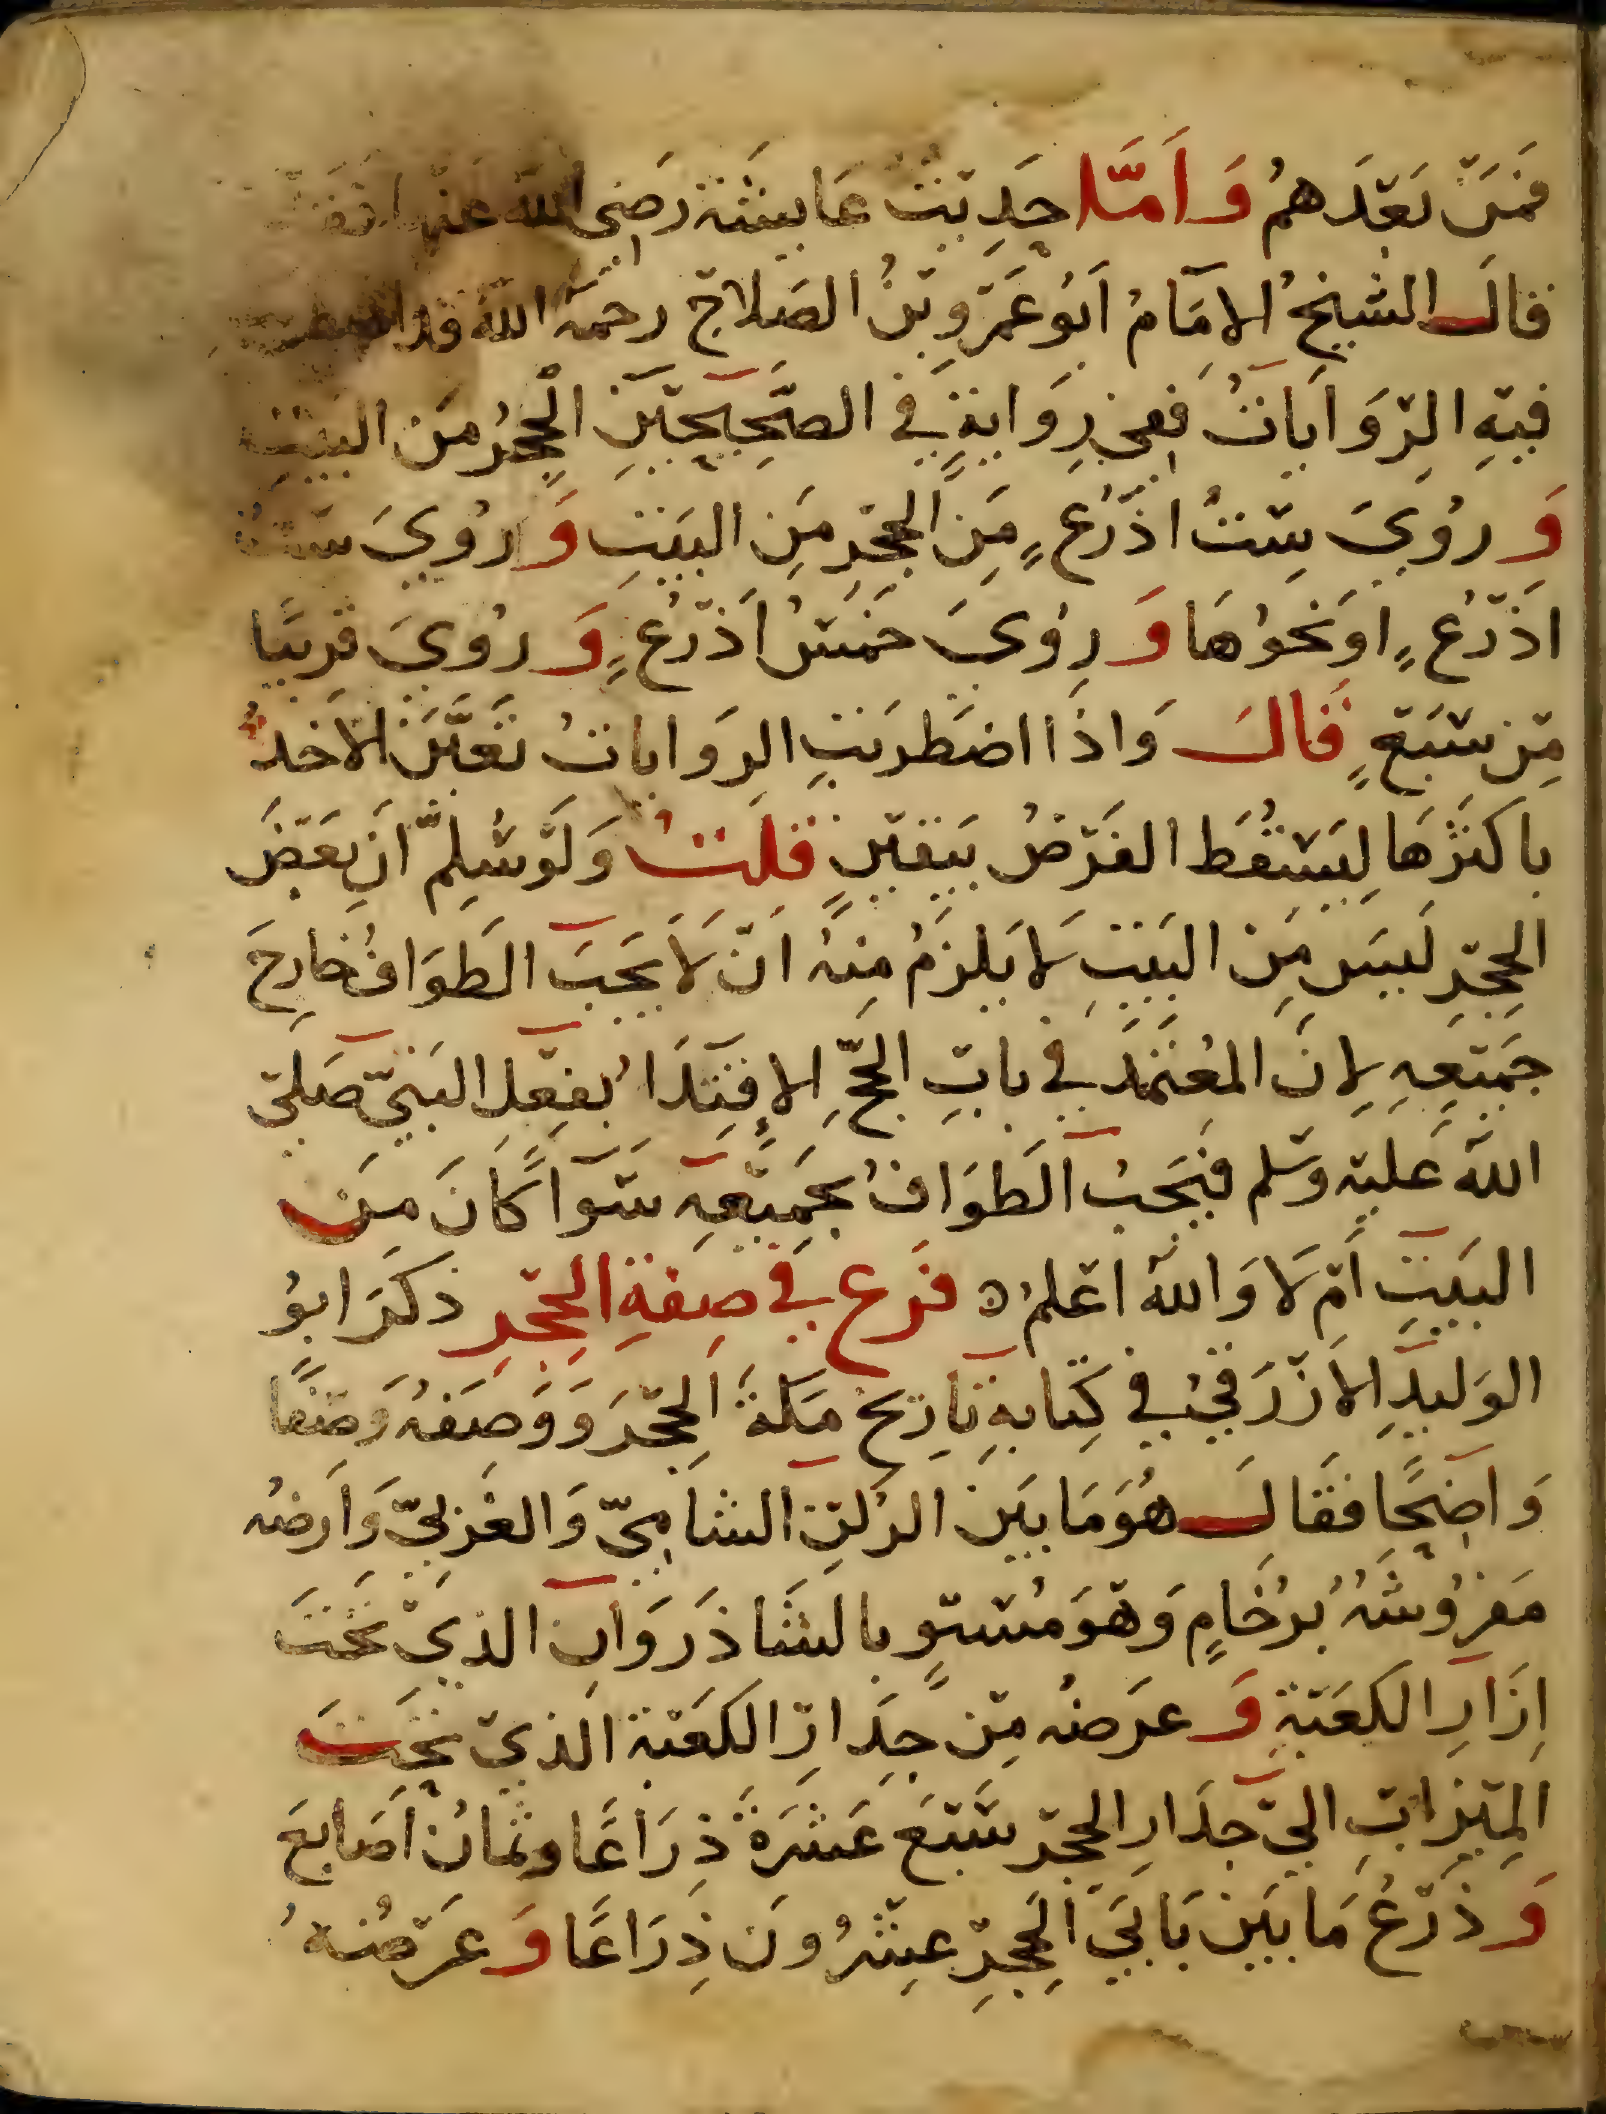 فَمَنْ بَعْدَهمُ وَاَمَّا حَدِيْث عَايشَة رَضِى اللهُ عنها
فقالَ الشيخُ الامَامُ اَبُو عَمْرو بْنُ الصَلاحْ رحمهُ اللهُ قد
فيْهِ الرِّوَايَاتُ ففِى رِوَايةٍ في الصَّحِيْحَيْنِ الْحِجْرُ مِنَ البَيْتِ
وَ رُوِيَ سِتُّ اذْرُعٍ مِنَ الحِجْرِ مِنَ البَيْتِ وَ رُوِيَ سِتُّ
اَذْرُعٍ اوَ نَحْوُهَا وَ رُوِيَ خَمْسُ اَذْرُعٍ وَ رُوِيَ قَرِيْبًا
مِنْ سَبْعٍ قَالَ وَاِذَا اضْطَرَبَتِ الرِوَايَاتُ تَعَيَّنَ الاَخذُ
باكثَرِهَا لِيَسْقُطَ الفَرْضُ بيَقيْنٍ قلتُ وَلَوْ سُلِمَّ اَنَ بَعْضَ
الحِجْرِ لَيسَ مِنَ البَيْتِ لاَ يَلزَمُ مِنْهُ انْ لاَ يَجَبَ الطَوَافُ خارِجَ
جَميْعِهِ لِانَ المُعتَمَدَ فِي بابِ الحَجِّ الاِقتِدَا بفِعْلِ النَبيّ صَلىّ
اللهُ عَليْهِ وَسّلم فيَجَبُ الطوَافُ بجَمِيْعِهِ سَوَآ كَانَ مِنَ
البَيْتِ اَمْ لاَ وَاللهُ اعْلمُ ه فرَع في صِفَةِ الحِجْرِ ذكَرَ ابوُ
الوَليْدِ الاَزْرَقيُ في كِتابهِ تَارِيخ مَكةَ الحِجْرَ وَوَصَفهُ وَصْفًا
وَاضِحًا فقَالَ هُوَ مَا بَيْن الرُكنْ الشامِيّ وَالغَرْبيّ وَاَرضُه
مَفرُوْشَهُ برُخَامٍ وَهْوَ مُسْتوٍ بالشَاذَرَوَانِ الذِيْ تَحْتَ
اِزَارِ الكَعْبَةِ وَ عرَضُه مِنْ جِدَارْ الكعْبَة الذِيْ تَحْتَ
المِيْزابِ اليَ جدَارِ الحِجْرِ سَبْعَ عَشَرَةَ ذِرَاعًا وثَمانُ اَصَابعَ
وَ ذَرْعُ مَا بَيْن بَابيَ الحِجرِ عِشْرُونَ ذِرَاعًا وَ عَرْضُهُ